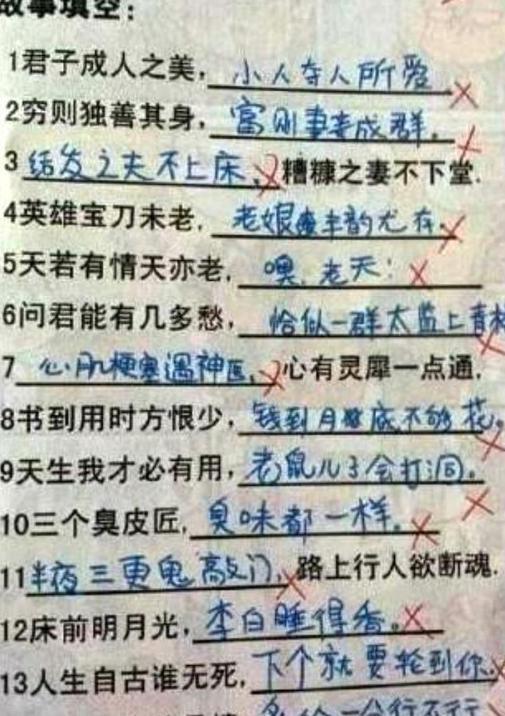 故事填空：
1君子成人之美，小人夺人所爱
2穷则独善其身，富则妻妾成群。
3结发之夫不上床，糟糠之妻不下堂.
4英雄宝刀未老，老娘丰韵尤存。
5天若有情天亦老，噢，老天！
6问君能有几多愁，恰似一群太监上青楼
7心肌梗塞遇神医，心有灵犀一点通.
8书到用时方恨少，钱到月底不够花。
9天生我才必有用，老鼠儿子会打洞。
10三个臭皮匠，臭味都一样。
11半夜三更鬼敲门，路上行人欲断魂.
12床前明月光，李白睡得香。
13人生自古谁无死，下个就要轮到你。